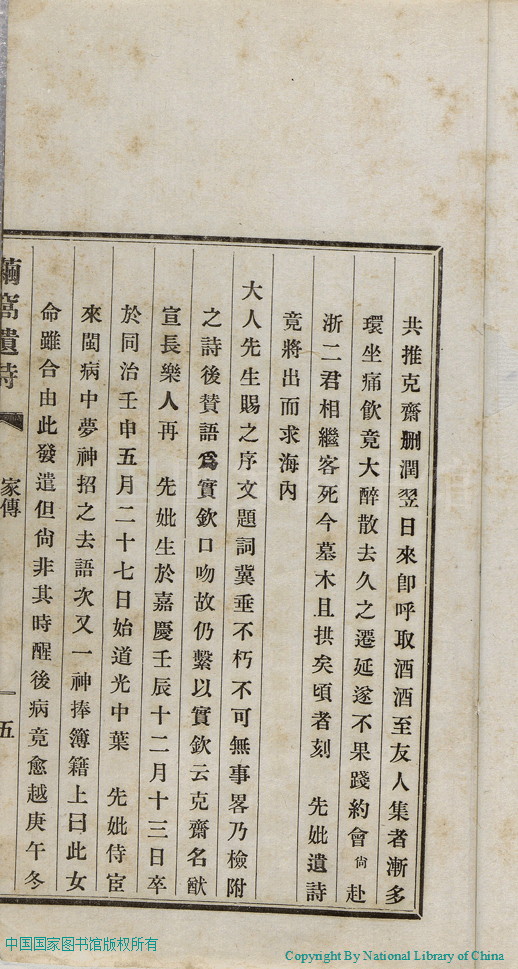 共推克齋刪潤翌日來卽呼取酒酒至友人集者漸多
環坐痛飲竟大醉散去久之遷延遂不果踐約會尙赴
浙二君相繼客死今墓木且拱矣頃者刻 先妣遺詩
竟將出而求海內
大人先生賜之序文題詞冀垂不朽不可無事畧乃檢附
之詩後贊語爲實欽口吻故仍繫以實欽云克齋名猷
宣長樂人再 先妣生於嘉慶壬辰十二月十三日卒
於同治壬申五月二十七日始道光中葉 先妣侍宦
來閩病中夢神招之去語次又一神捧簿籍上曰此女
命雖合由此發遣但尙非其時醒後病竟愈越庚午冬
繭窩遺詩 家傳 五
中国国家图书馆版权所有
Copyright By National Library of China